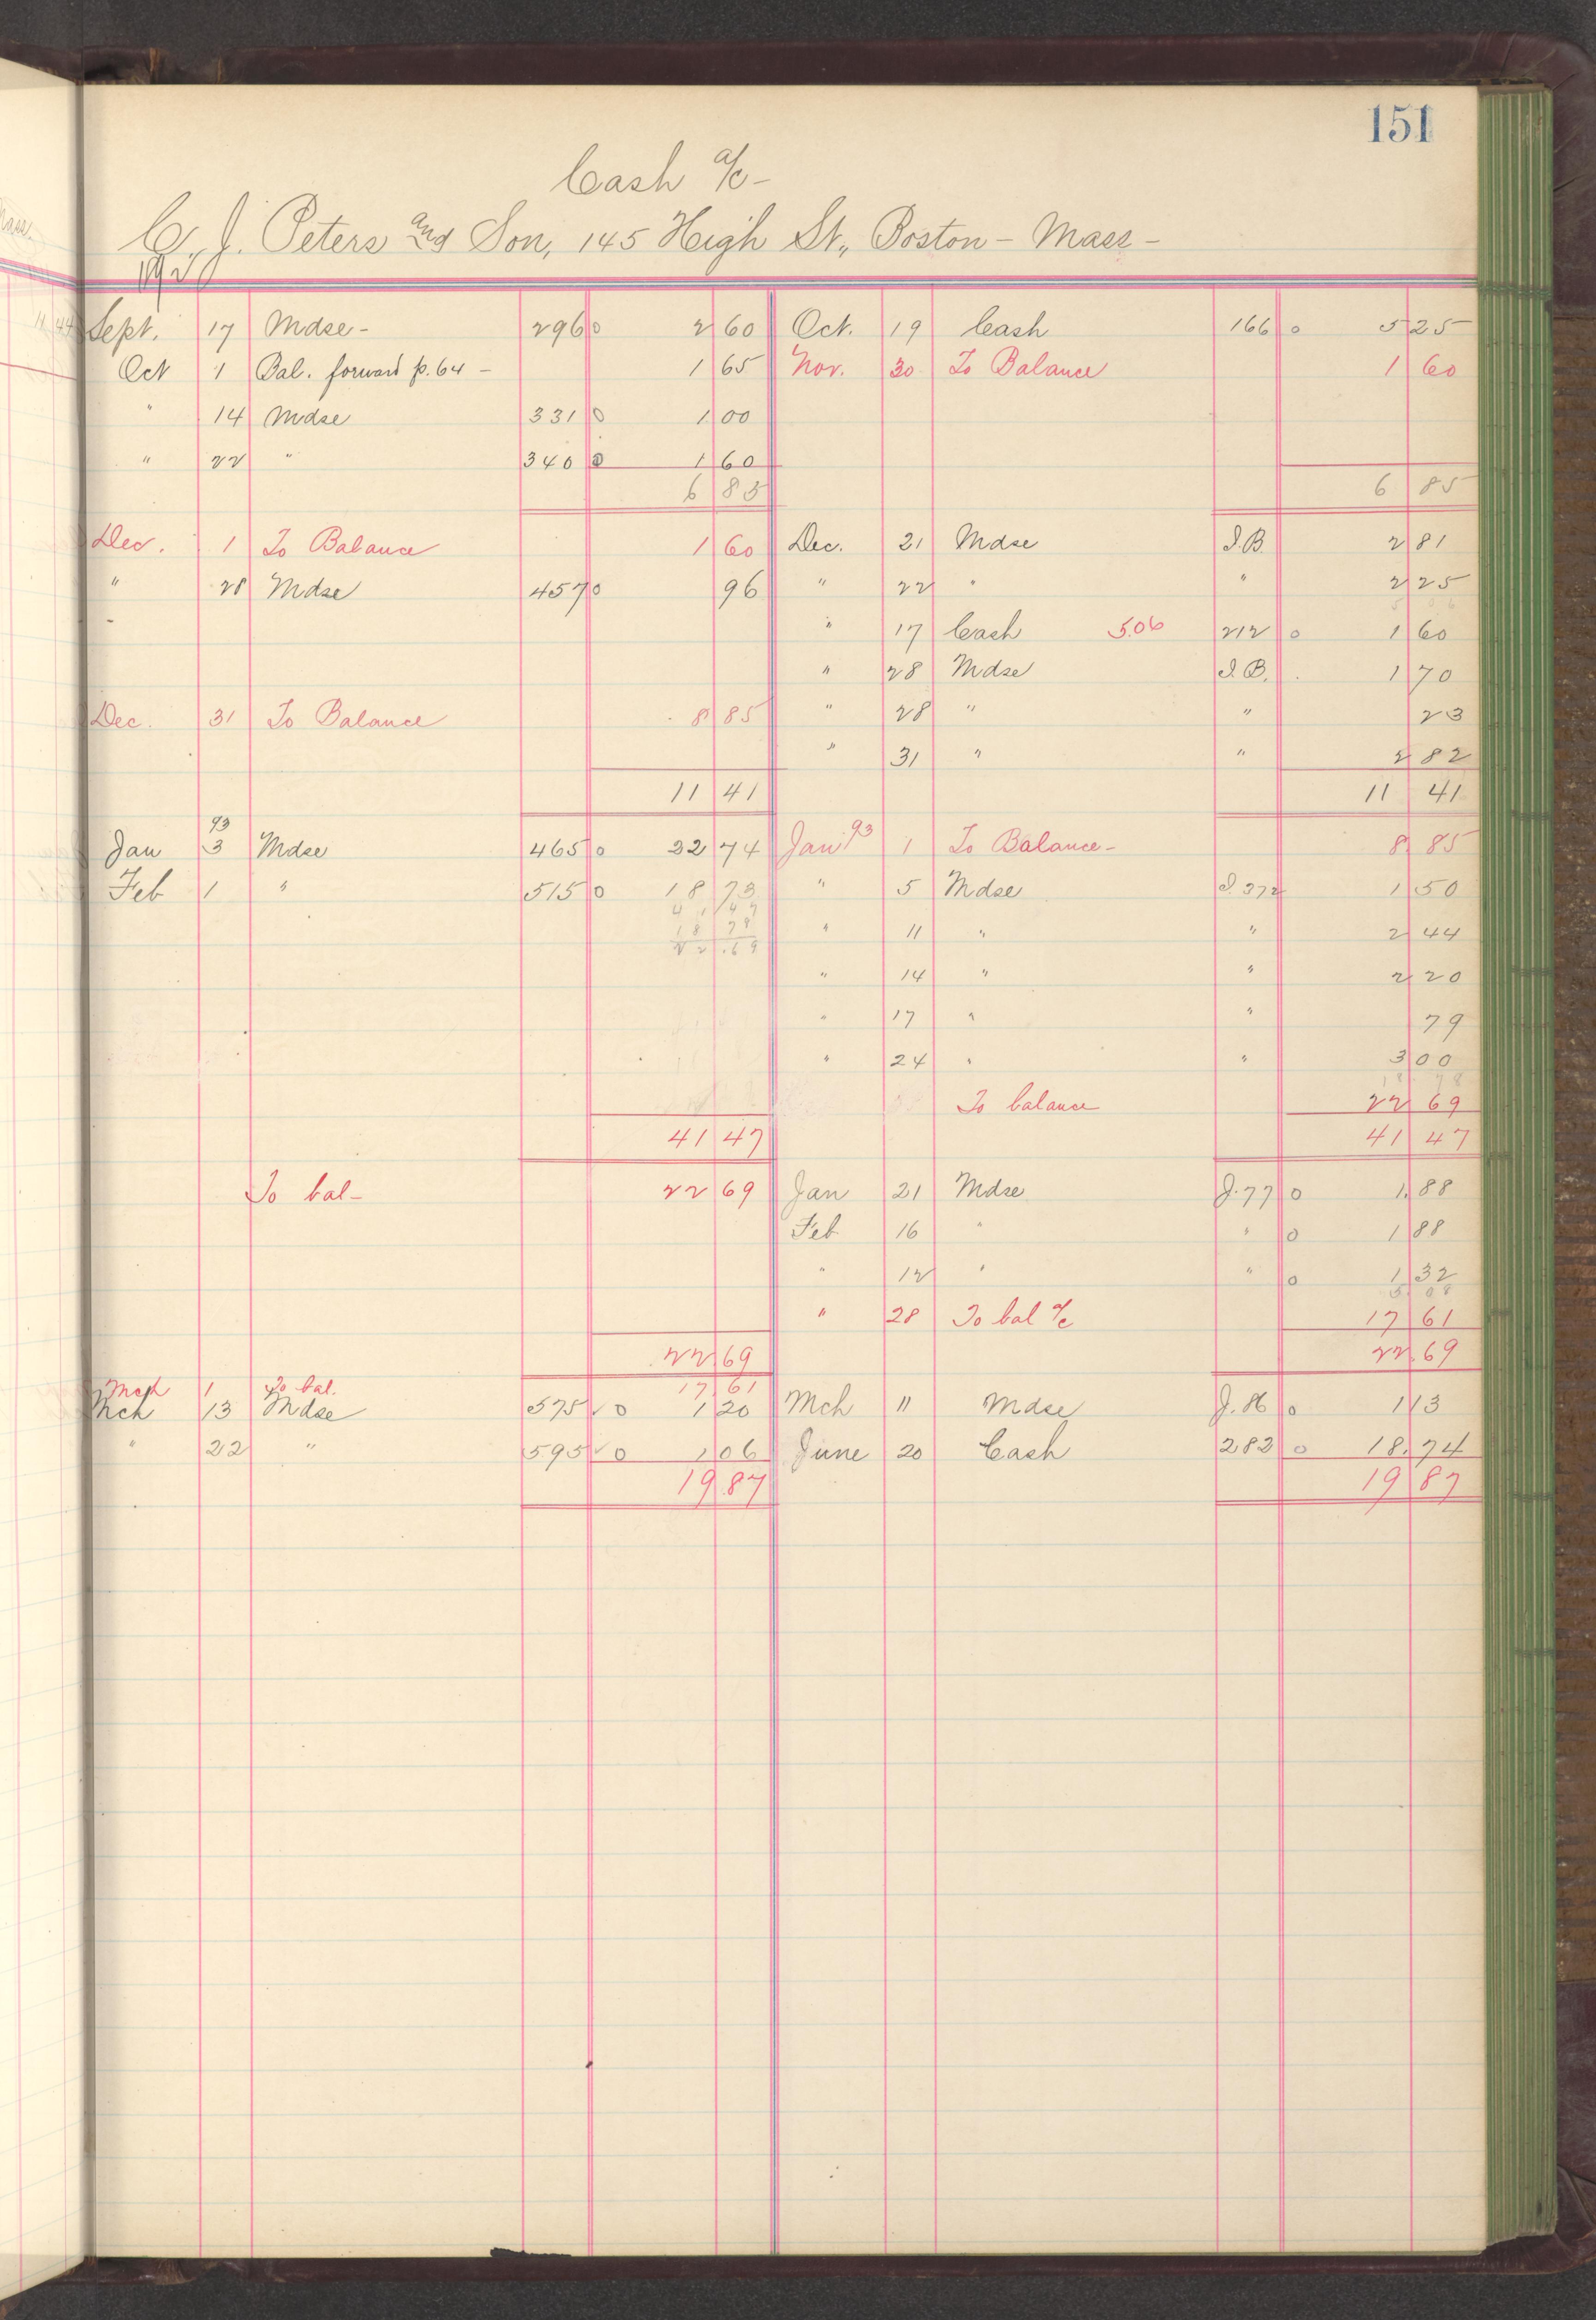 151
Cash a/c -
C. J. Peters and Son, 145 High St., Boston - Mass -
1892
Sept. 17 Mdse - 296 0 2 60 Oct. 19 Cash 166 0 5 25
Oct 1 Bal. forward p. 64 - 1 65 Nov. 30 To Balance 1 60
" 14 Mdse 331 0 1 00
" 22 " 340 0 1 60
6 85 6 85
Dec. 1 To Balance 1 60 Dec. 21 Mdse I.B. 2 81
" 28 Mdse 457 0 96 " 22 " " 2 25
5 06
" 17 Cash 5.06 212 0 1 60
" 28 Mdse I.B. 1 70
Dec. 31 To Balance 8 85 " 28 " " 23
" 31 " " 2 82
11 41 11 41
93
Jan 3 Mdse 465 0 22 74 Jan 93 1 To Balance - 8 85
Feb 1 " 515 0 18 73 " 5 Mdse I. 372 1 50
41 47
18 78
22.69
" 11 " " 2 44
" 14 " " 2 20
" 17 " " 79
" 24 " " 3 00
18 78
To balance 22 69
41 47 41 47
To bal - 22 69 Jan 21 Mdse J. 77 0 1.88
Feb 16 " " 0 1 88
" 12 " " 0 1 32
5 08
" 28 To bal a/c 17 61
22 69 22.69
Mch 1 To bal. 17.61
Mch 13 Mdse 575 ✓ 0 1 20 Mch 11 Mdse J. 86 0 1 13
" 22 " 595 ✓ 0 1 06 June 20 Cash 282 0 18.74
19 87 19 87